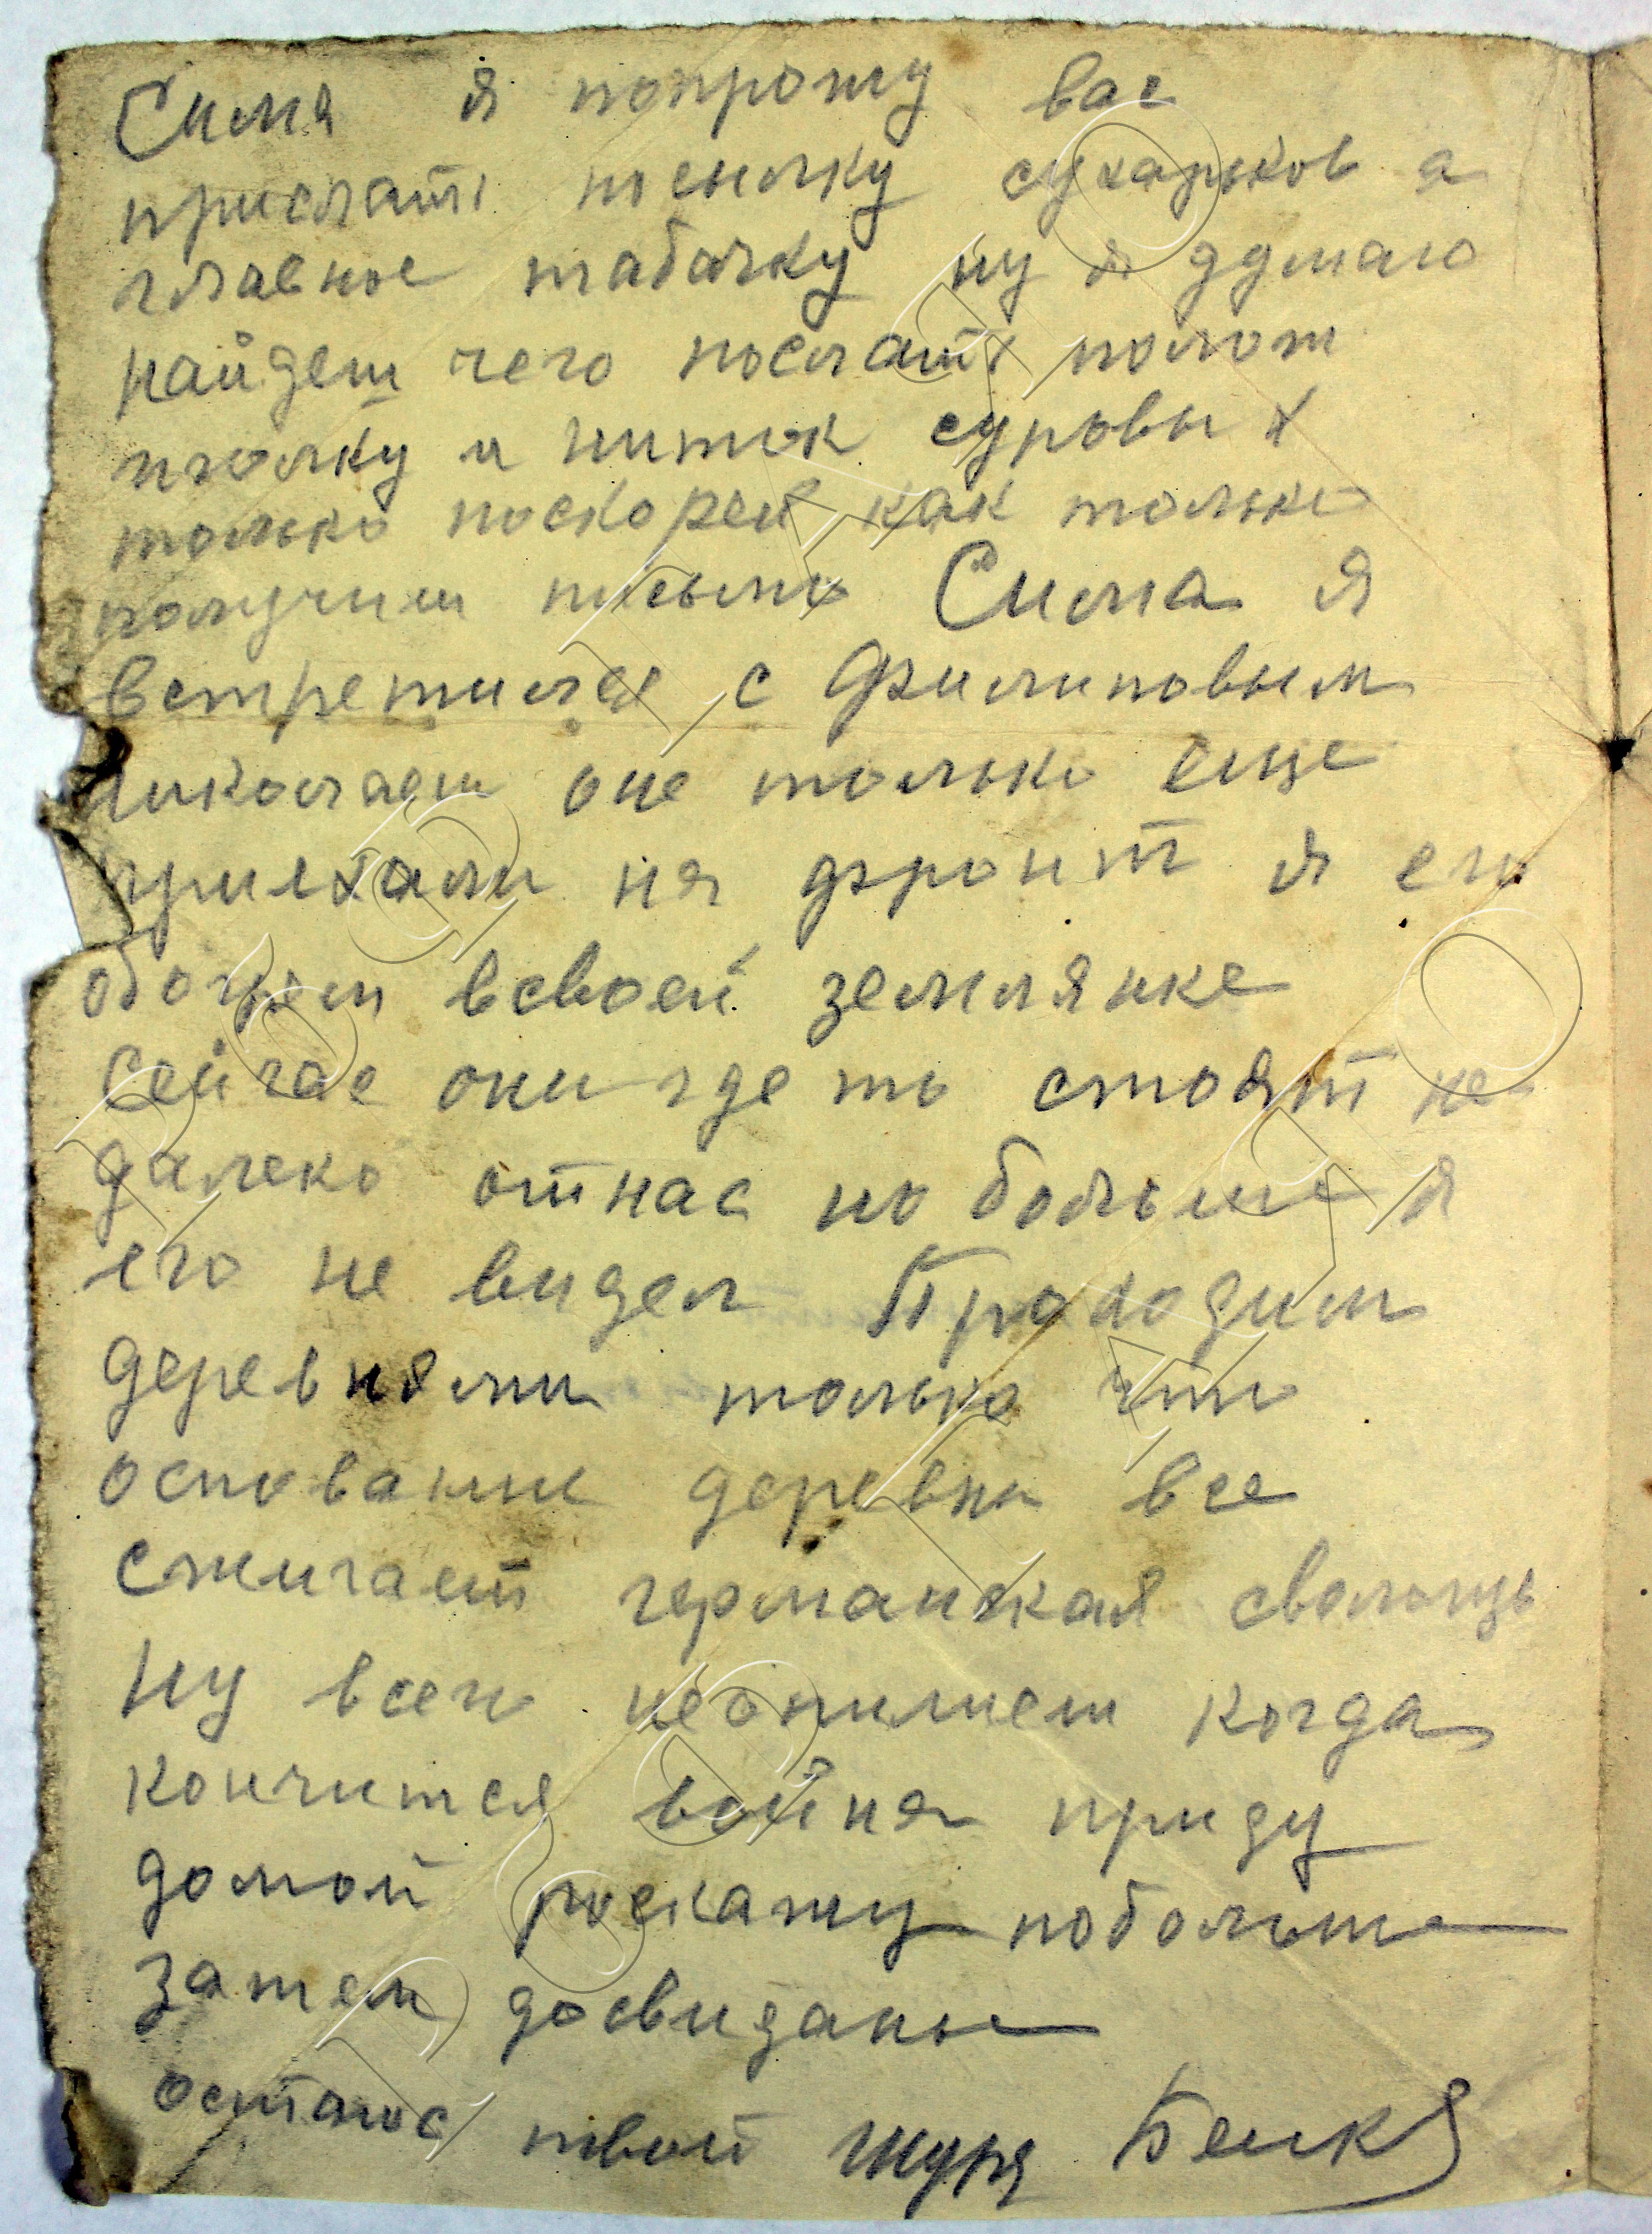 Сима я попрошу вас
прислать
сухарьков а
главное табачку ну я думаю
найдеш чего послать полож
иголку и ниток суровых
только поскорей как только
получиш письмо Сима я
встретился с Филиповым
Николаем оне только еще
приехали на фронт я его
обогрел всвоей землянке
сейчас они где то стоят не
далеко отнас но больше я
его не видел Проходим
деревнями только что
основание деревни все
сжигает германская сволочь
Ну всего неопишеш когда
кончится война приду
домой роскажу побольше
затем досвиданье
остаюс твой Шура Бенкя